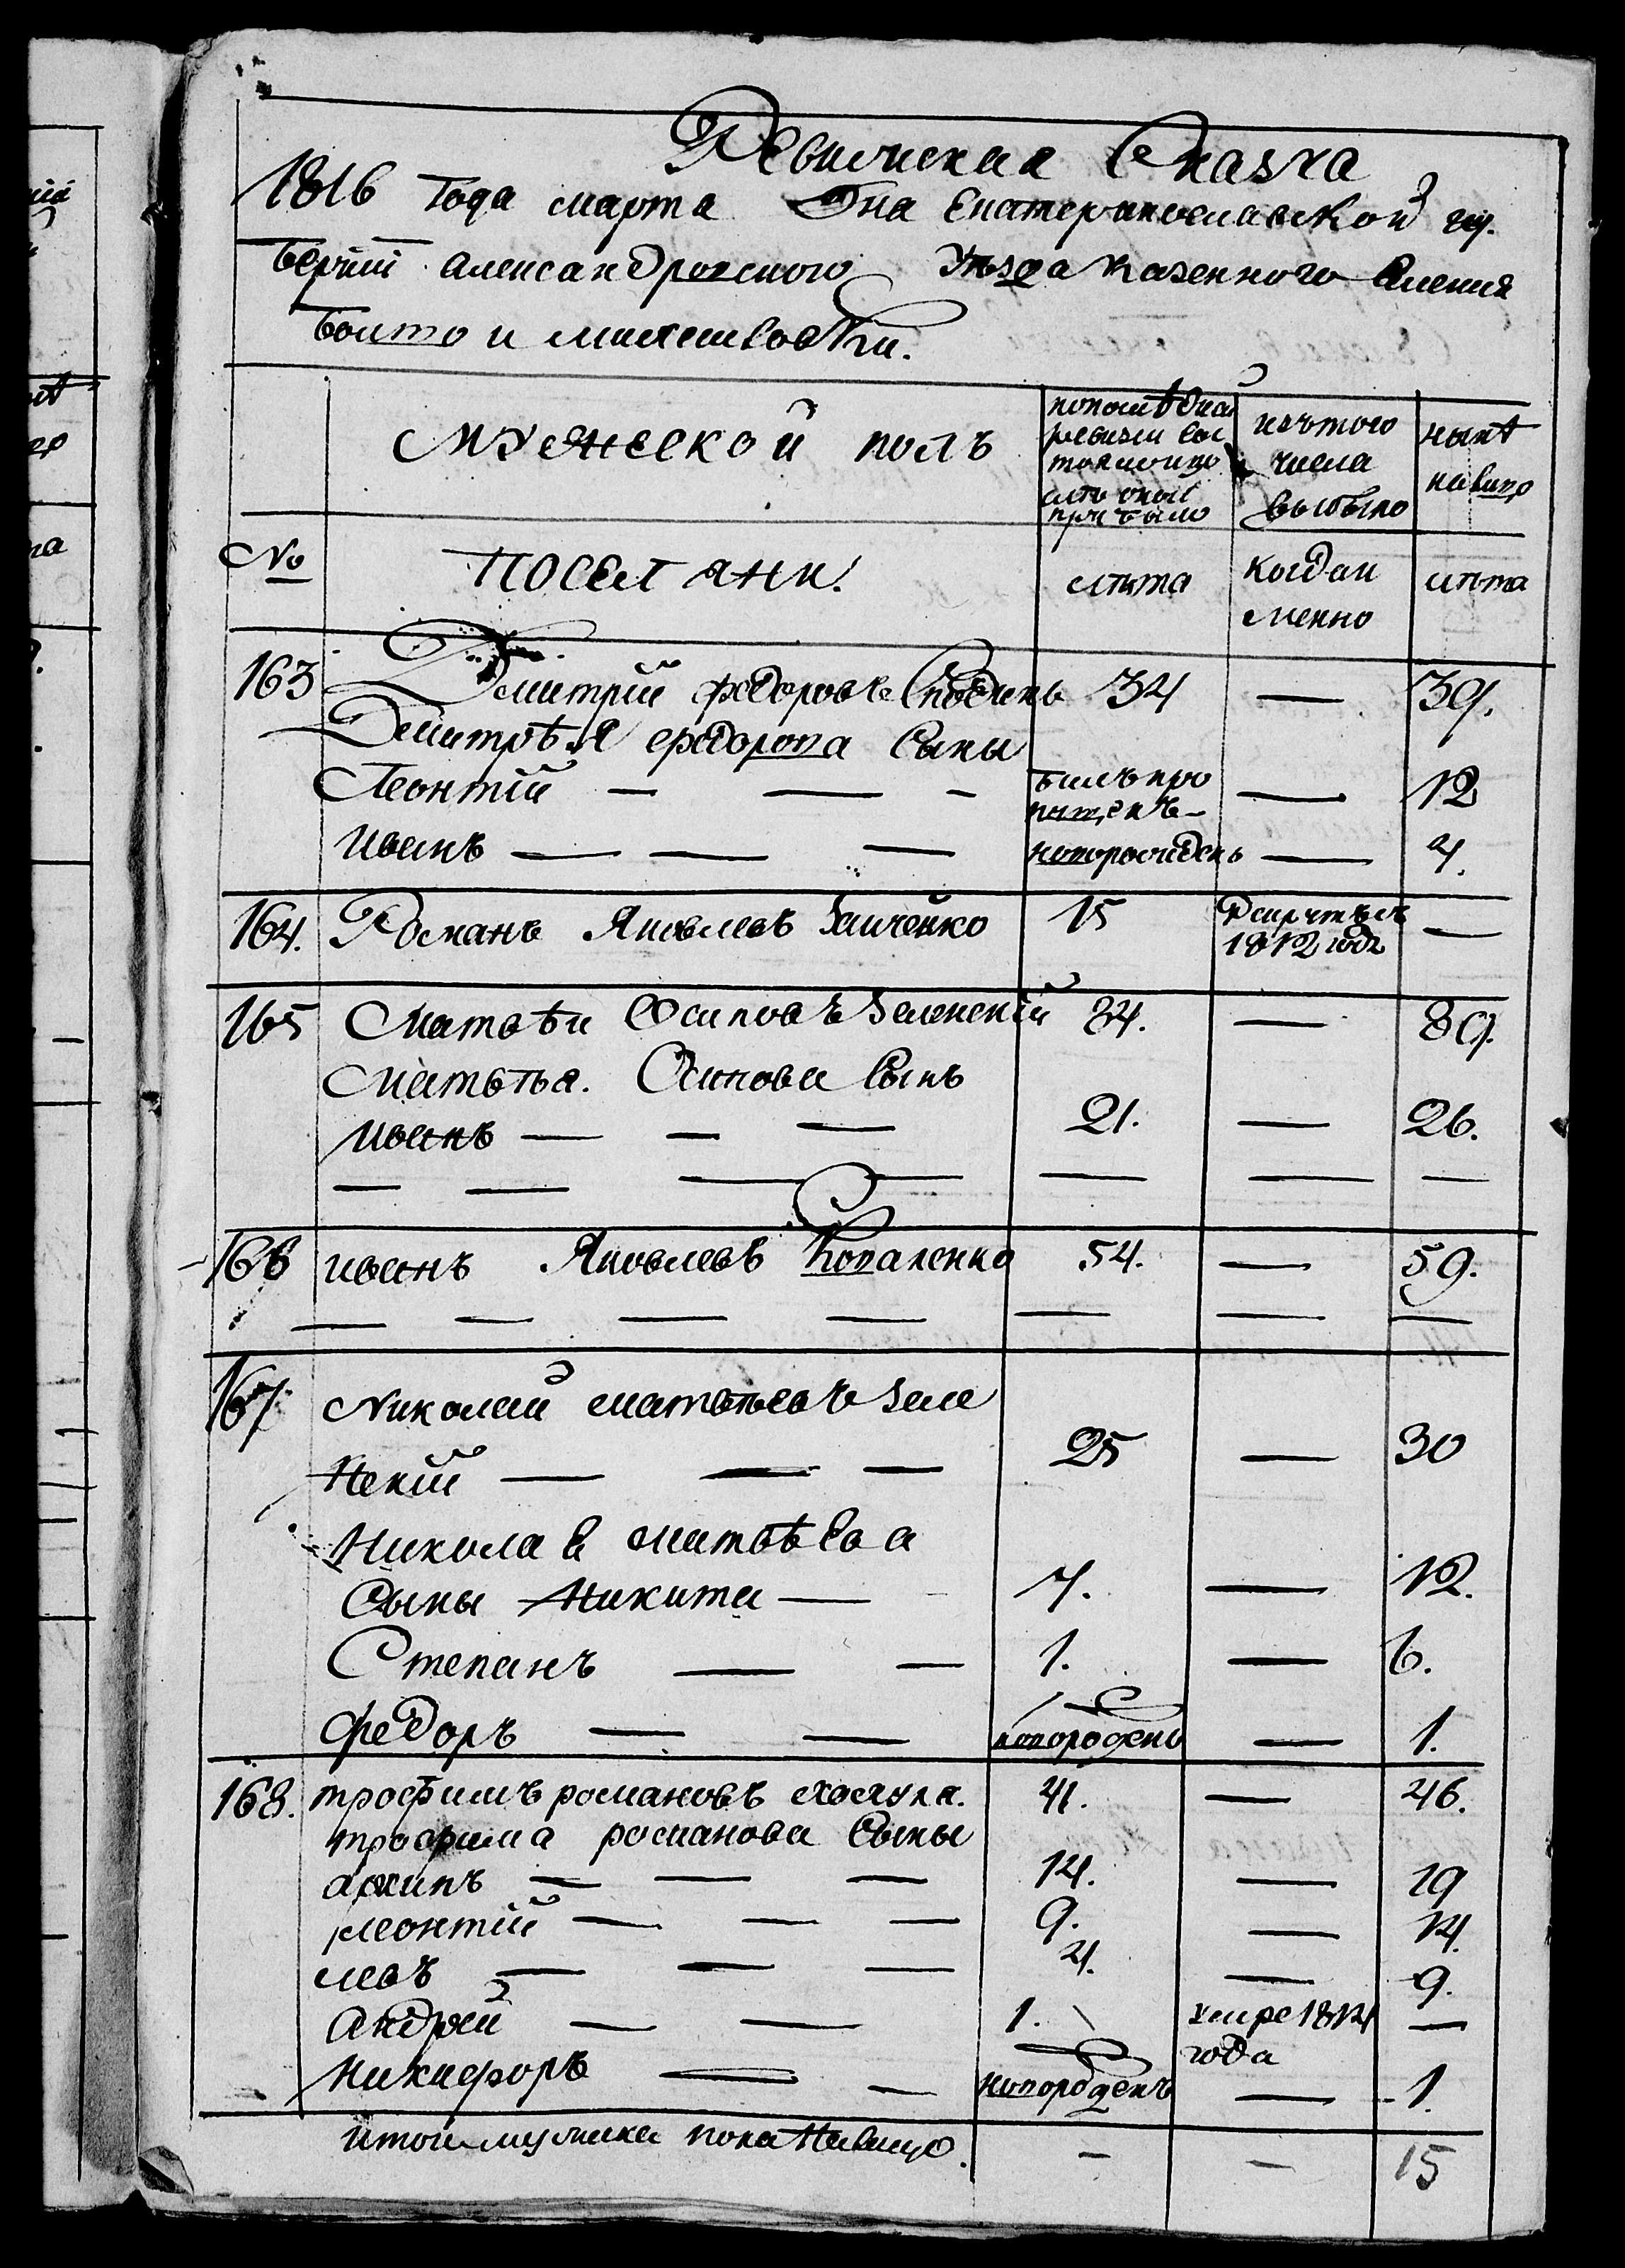 Ревижская Сказка
1816 года марта дня Екатеринославской гу.
берніи Александровского Уезда казенного Селения
мужеской полъ
по последней ревизии состояло и после оной прибыло
изътого числа выбыло
ныне налицо
№
поселяне.
лета
когда именно
лета
163 Дмитрій федоровъ 34 — 39.
Дмитрѣя федорова Сыны
Леонтій — — — былъ пропущенъ — 12
Иванъ — — — новорожденъ — 4.
164. Романъ Яковлевъ 15 1812 годе —
165 Матвѣи Осиповъ Зеленскій 84. — 89.
Матвѣя. Осипова Сынъ
иванъ — — — 21. — 26.
— — — — — — —
166 иванъ Яковлевъ Коваленко 54. — 59.
— — — — — — —
167 Николай матвѣевъ Зеле
нскій — — — 25 — 30
Николая матвѣева
Сыны Никита — 7. — 12.
Степанъ — — 1. — 6.
федоръ — — новорожденъ — 1.
168. трофимъ романовъ 41. — 46.
трофима романова Сыны
архипъ — — — 14. — 19
леонтій — — — 9. — 14.
левъ — — — 4. — 9.
Андрей — — 1. умре 1814 года —
Никифоръ — — новорожденъ — 1.
итого мужеска пола налицо. — — 15